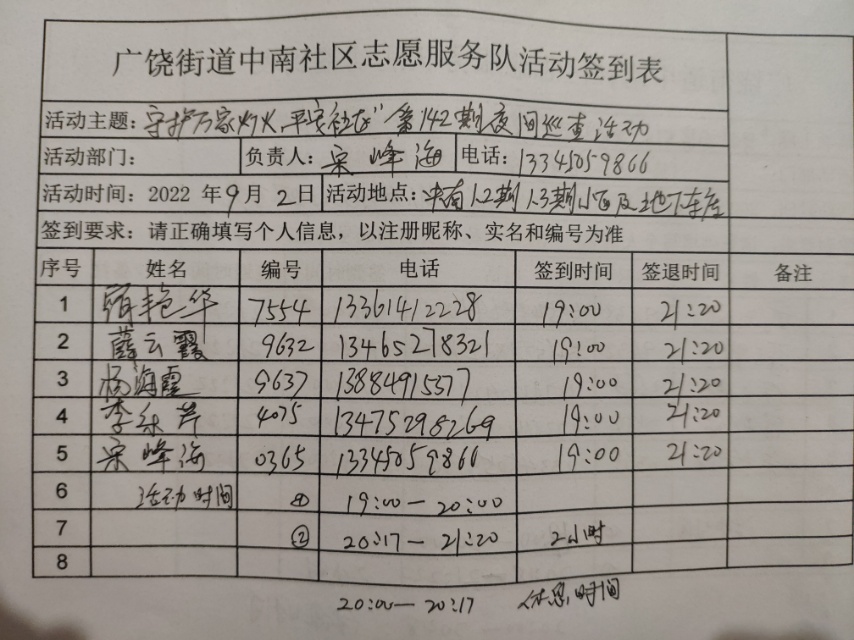 广饶街道中南社区志愿服务队活动签到表
活动主题：守护万家灯火，平安社区"第142期夜间巡查活动
活动部门： 负责人：宋峰海 电话：13345059866
活动时间：2022 年9月2日 活动地点：中南1.2期 1.3期小区及地下车库
签到要求：请正确填写个人信息，以注册昵称、实名和编号为准
序号 姓名 编号 电话 签到时间 签退时间 备注
1 艳华 7554 13361412228 19:00 21:20
2 薛云霞 9632 13465278321 19:00 21:20
3 杨海霞 9637 13884915377 19:00 21:20
4 李乐芹 4075 13475298269 19:00 21:20
5 宋峰海 0365 13345059866 19:00 21:20
6 活动时间 ① 19:00—20:00
7 ② 20:17—21:20 2小时
8
20:00—20:17 休息时间